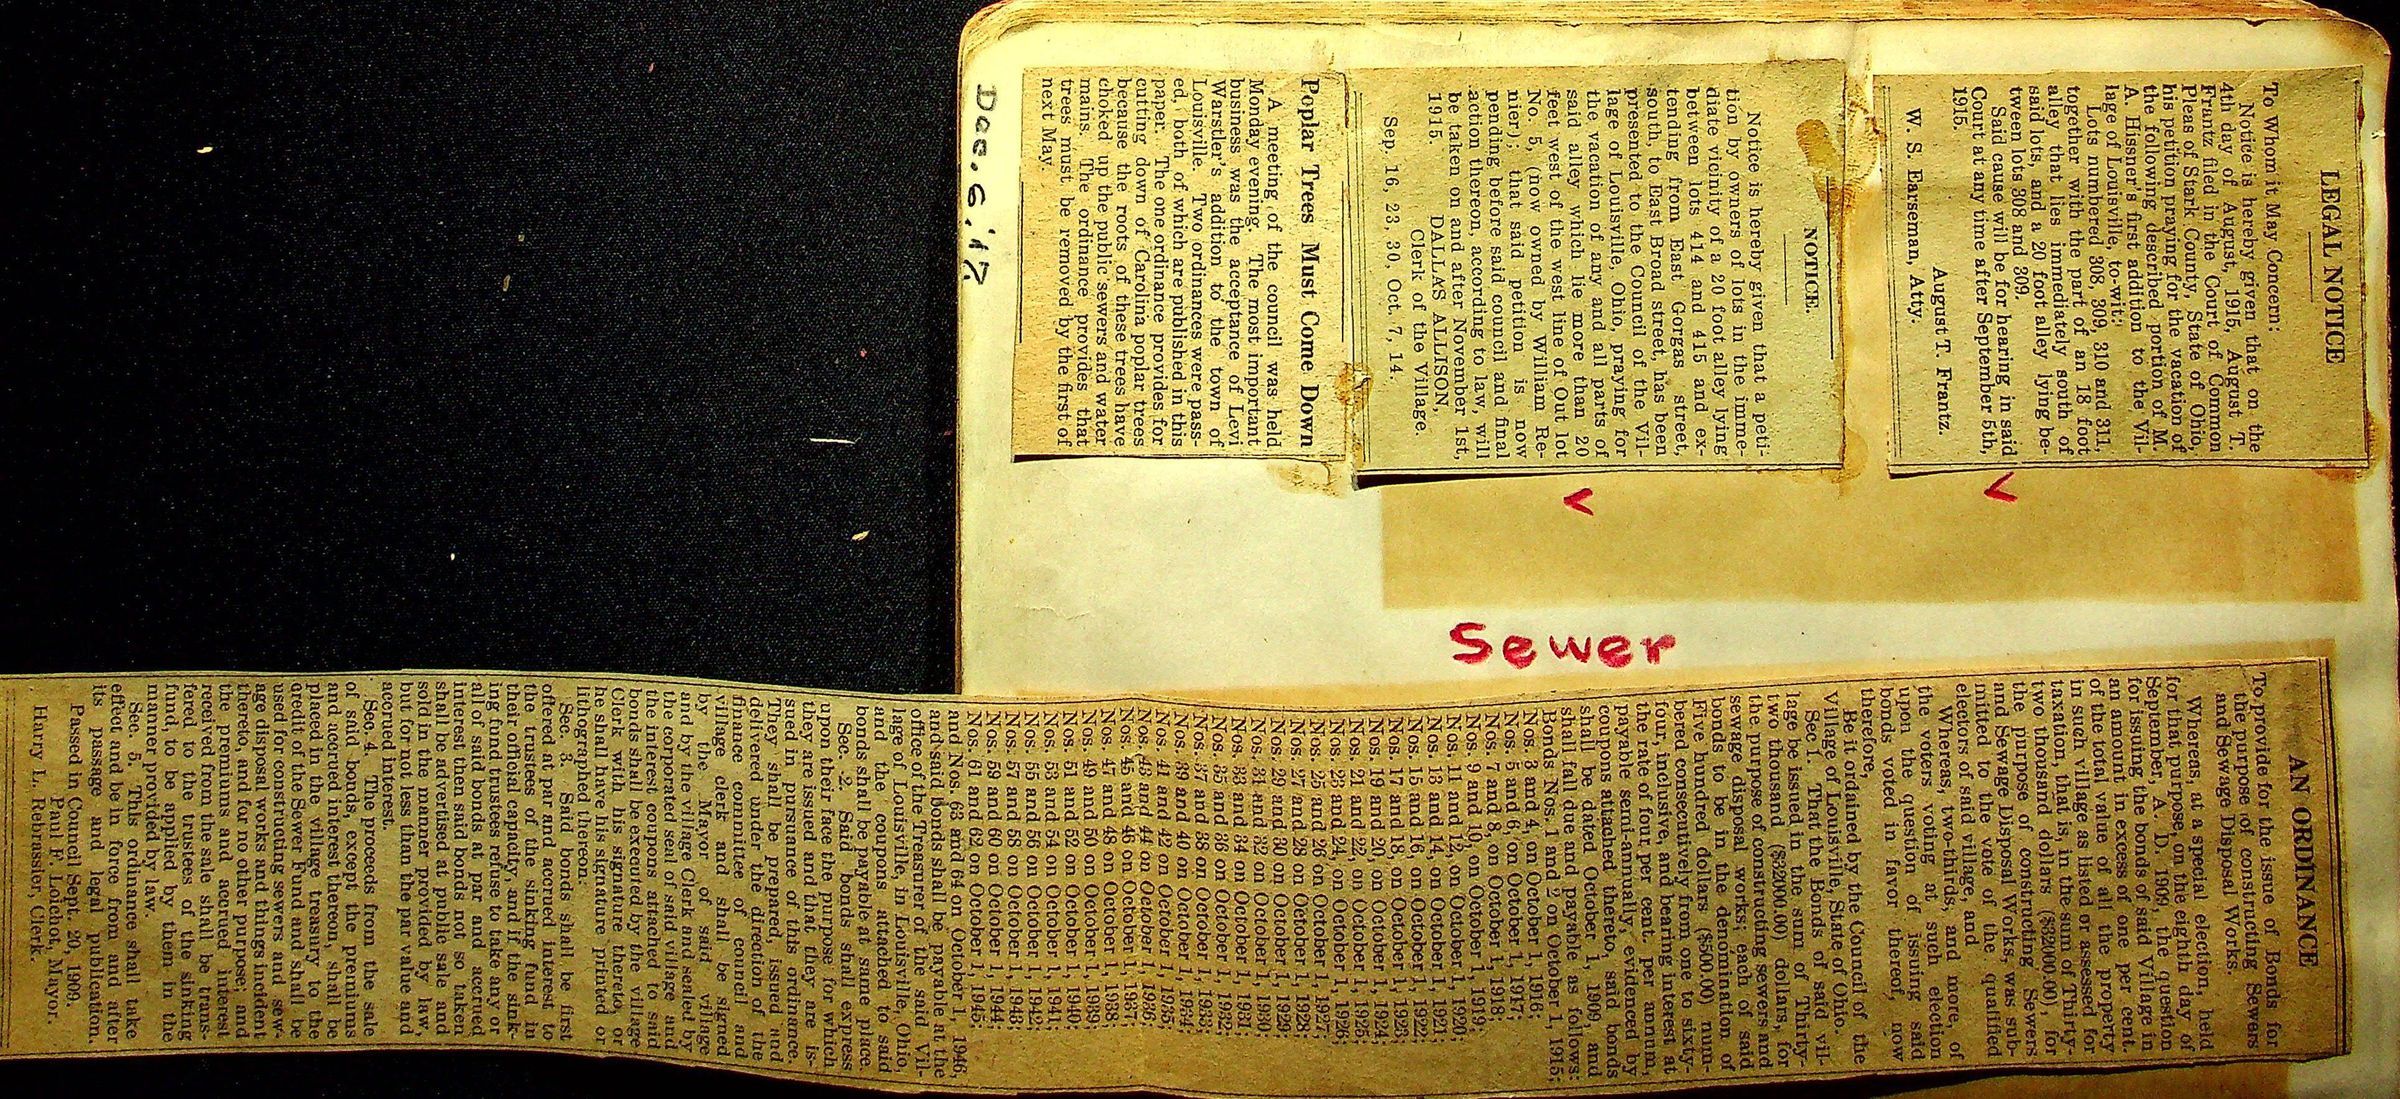 LEGAL NOTICE
To Whom it May Concern:
Notice is hereby given that on the
4th day of August, 1915, August T.
Frantz filed in the Court of Common
Pleas of Stark County, State of Ohio,
his petition praying for the vacation of
the following described portion of M.
A. Hissner's first addition to the Vil-
lage of Louisville, to-wit:
Lots numbered 308, 309, 310 and 311,
together with the part of an 18 foot
alley that lies immediately south of
said lots, and a 20 foot alley lying be-
tween lots 308 and 309.
Said cause will be for hearing in said
Court at any time after September 5th,
1915.
August T. Frantz.
W. S. Earseman, Atty.
NOTICE.
Notice is hereby given that a peti-
tion by owners of lots in the imme-
diate vicinity of a 20 foot alley lying
between lots 414 and 415 and ex-
tending from East Gorgas street,
south, to East Broad street, has been
presented to the Council of the Vil-
lage of Louisville, Ohio, praying for
the vacation of any and all parts of
said alley which lie more than 20
feet west of the west line of Out lot
No. 5, (now owned by William Re-
nier); that said petition is now
pending before said council and final
action thereon, according to law, will
be taken on and after November 1st,
1915.
DALLAS ALLISON,
Clerk of the Village.
Sep. 16, 23, 30, Oct. 7, 14.
Poplar Trees Must Come Down
A meeting of the council was held
Monday evening. The most important
business was the acceptance of Levi
Warstler's addition to the town of
Louisville. Two ordinances were pass-
ed, both of which are published in this
paper. The one ordinance provides for
cutting down of Carolina poplar trees
because the roots of these trees have
choked up the public sewers and water
mains. The ordinance provides that
trees must be removed by the first of
next May.
Dec. 6, '17
Sewer
AN ORDINANCE
To provide for the issue of Bonds for
the purpose of constructing Sewers
and Sewage Disposal Works.
Whereas, at a special election, held
for that purpose, on the eighth day of
September, A. D. 1909, the question
for issuing the bonds of said Village in
an amount in excess of one per cent.
of the total value of all the property
in such village as listed or assessed for
taxation, that is, in the sum of Thirty-
two thousand dollars ($32000.00), for
the purpose of constructing Sewers
and Sewage Disposal Works, was sub-
mitted to the vote of the qualified
electors of said village, and
Whereas, two-thirds, and more, of
the voters voting at such election
upon the question of issuing said
bonds voted in favor thereof, now
therefore,
Be it ordained by the Council of the
Village of Louisville, State of Ohio.
Sec 1. That the Bonds of said vil-
lage be issued in the sum of Thirty-
two thousand ($32000.00) dollars, for
the purpose of constructing sewers and
sewage disposal works; each of said
bonds to be in the denomination of
Five hundred dollars ($500.00) num-
bered consecutively from one to sixty-
four, inclusive, and bearing interest at
the rate of four per cent. per annum,
payable semi-annually, evidenced by
coupons attached thereto, said bonds
shall be dated October 1, 1909, and
shall fall due and payable as follows:
Bonds Nos. 1 and 2 on October 1, 1915;
Nos. 3 and 4, on October 1, 1916;
Nos. 5 and 6, on October 1, 1917;
Nos. 7 and 8, on October 1, 1918;
Nos. 9 and 10, on October 1, 1919;
Nos. 11 and 12, on October 1, 1920;
Nos. 13 and 14, on October 1, 1921;
Nos. 15 and 16, on October 1, 1922;
Nos. 17 and 18, on October 1, 1923;
Nos. 19 and 20, on October 1, 1924;
Nos. 21 and 22, on October 1, 1925;
Nos. 23 and 24, on October 1, 1926;
Nos. 25 and 26 on October 1, 1927;
Nos. 27 and 28 on October 1, 1928;
Nos. 29 and 30 on October 1, 1929;
Nos. 31 and 32 on October 1, 1930;
Nos. 33 and 34 on October 1, 1931;
Nos. 35 and 36 on October 1, 1932;
Nos. 37 and 38 on October 1, 1933;
Nos. 39 and 40 on October 1, 1934;
Nos. 41 and 42 on October 1, 1935;
Nos. 43 and 44 on October 1, 1936;
Nos. 45 and 46 on October 1, 1937;
Nos. 47 and 48 on October 1, 1938;
Nos. 49 and 50 on October 1, 1939;
Nos. 51 and 52 on October 1, 1940;
Nos. 53 and 54 on October 1, 1941;
Nos. 55 and 56 on October 1, 1942;
Nos. 57 and 58 on October 1, 1943;
Nos. 59 and 60 on October 1, 1944;
Nos. 61 and 62 on October 1, 1945;
and Nos. 63 and 64 on October 1, 1946,
and said bonds shall be payable at the
office of the Treasurer of the said Vil-
lage of Louisville, in Louisville, Ohio,
and the coupons attached to said
bonds shall be payable at same place.
Sec. 2. Said bonds shall express
upon their face the purpose for which
they are issued and that they are is-
sued in pursuance of this ordinance.
They shall be prepared, issued and
delivered under the direction of the
finance committee of council and
village clerk and shall be signed
by the Mayor of said village
and by the village Clerk and sealed by
the corporated seal of said village and
the interest coupons attached to said
bonds shall be executed by the village
Clerk with his signature thereto, or
he shall have his signature printed or
lithographed thereon.
Sec. 3. Said bonds shall be first
offered at par and accrued interest to
the trustees of the sinking fund in
their official capacity, and if the sink-
ing fund trustees refuse to take any or
all of said bonds at par and accrued
interest then said bonds not so taken
shall be advertised at public sale and
sold in the manner provided by law,
but for not less than the par value and
accrued interest.
Sec. 4. The proceeds from the sale
of said bonds, except the premiums
and accrued interest thereon, shall be
placed in the village treasury to the
credit of the Sewer Fund and shall be
used for constructing sewers and sew-
age disposal works and things incident
thereto, and for no other purpose; and
the premiums and accrued interest
received from the sale shall be trans-
fered to the trustees of the sinking
fund, to be applied by them in the
manner provided by law.
Sec. 5. This ordinance shall take
effect and be in force from and after
its passage and legal publication.
Passed in Council Sept. 20, 1909.
Paul F. Loichot, Mayor.
Harry L. Rebrassier, Clerk.